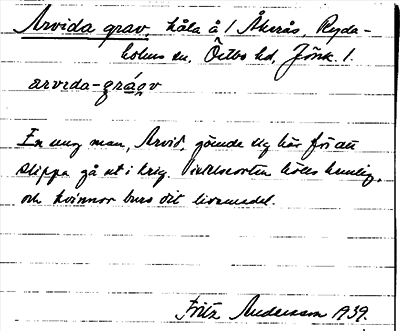 Arvida grav, håla å 1 Åkerås, Ryda-
holms sn, Östbo hd, Jönk. l.
arvida-grav
En ung man, Arvid, gömde sig här för att
slippa gå ut i krig. hölls hemlig,
och kvinnor buro dit livsmedel.
Fritz Andersson 1939.